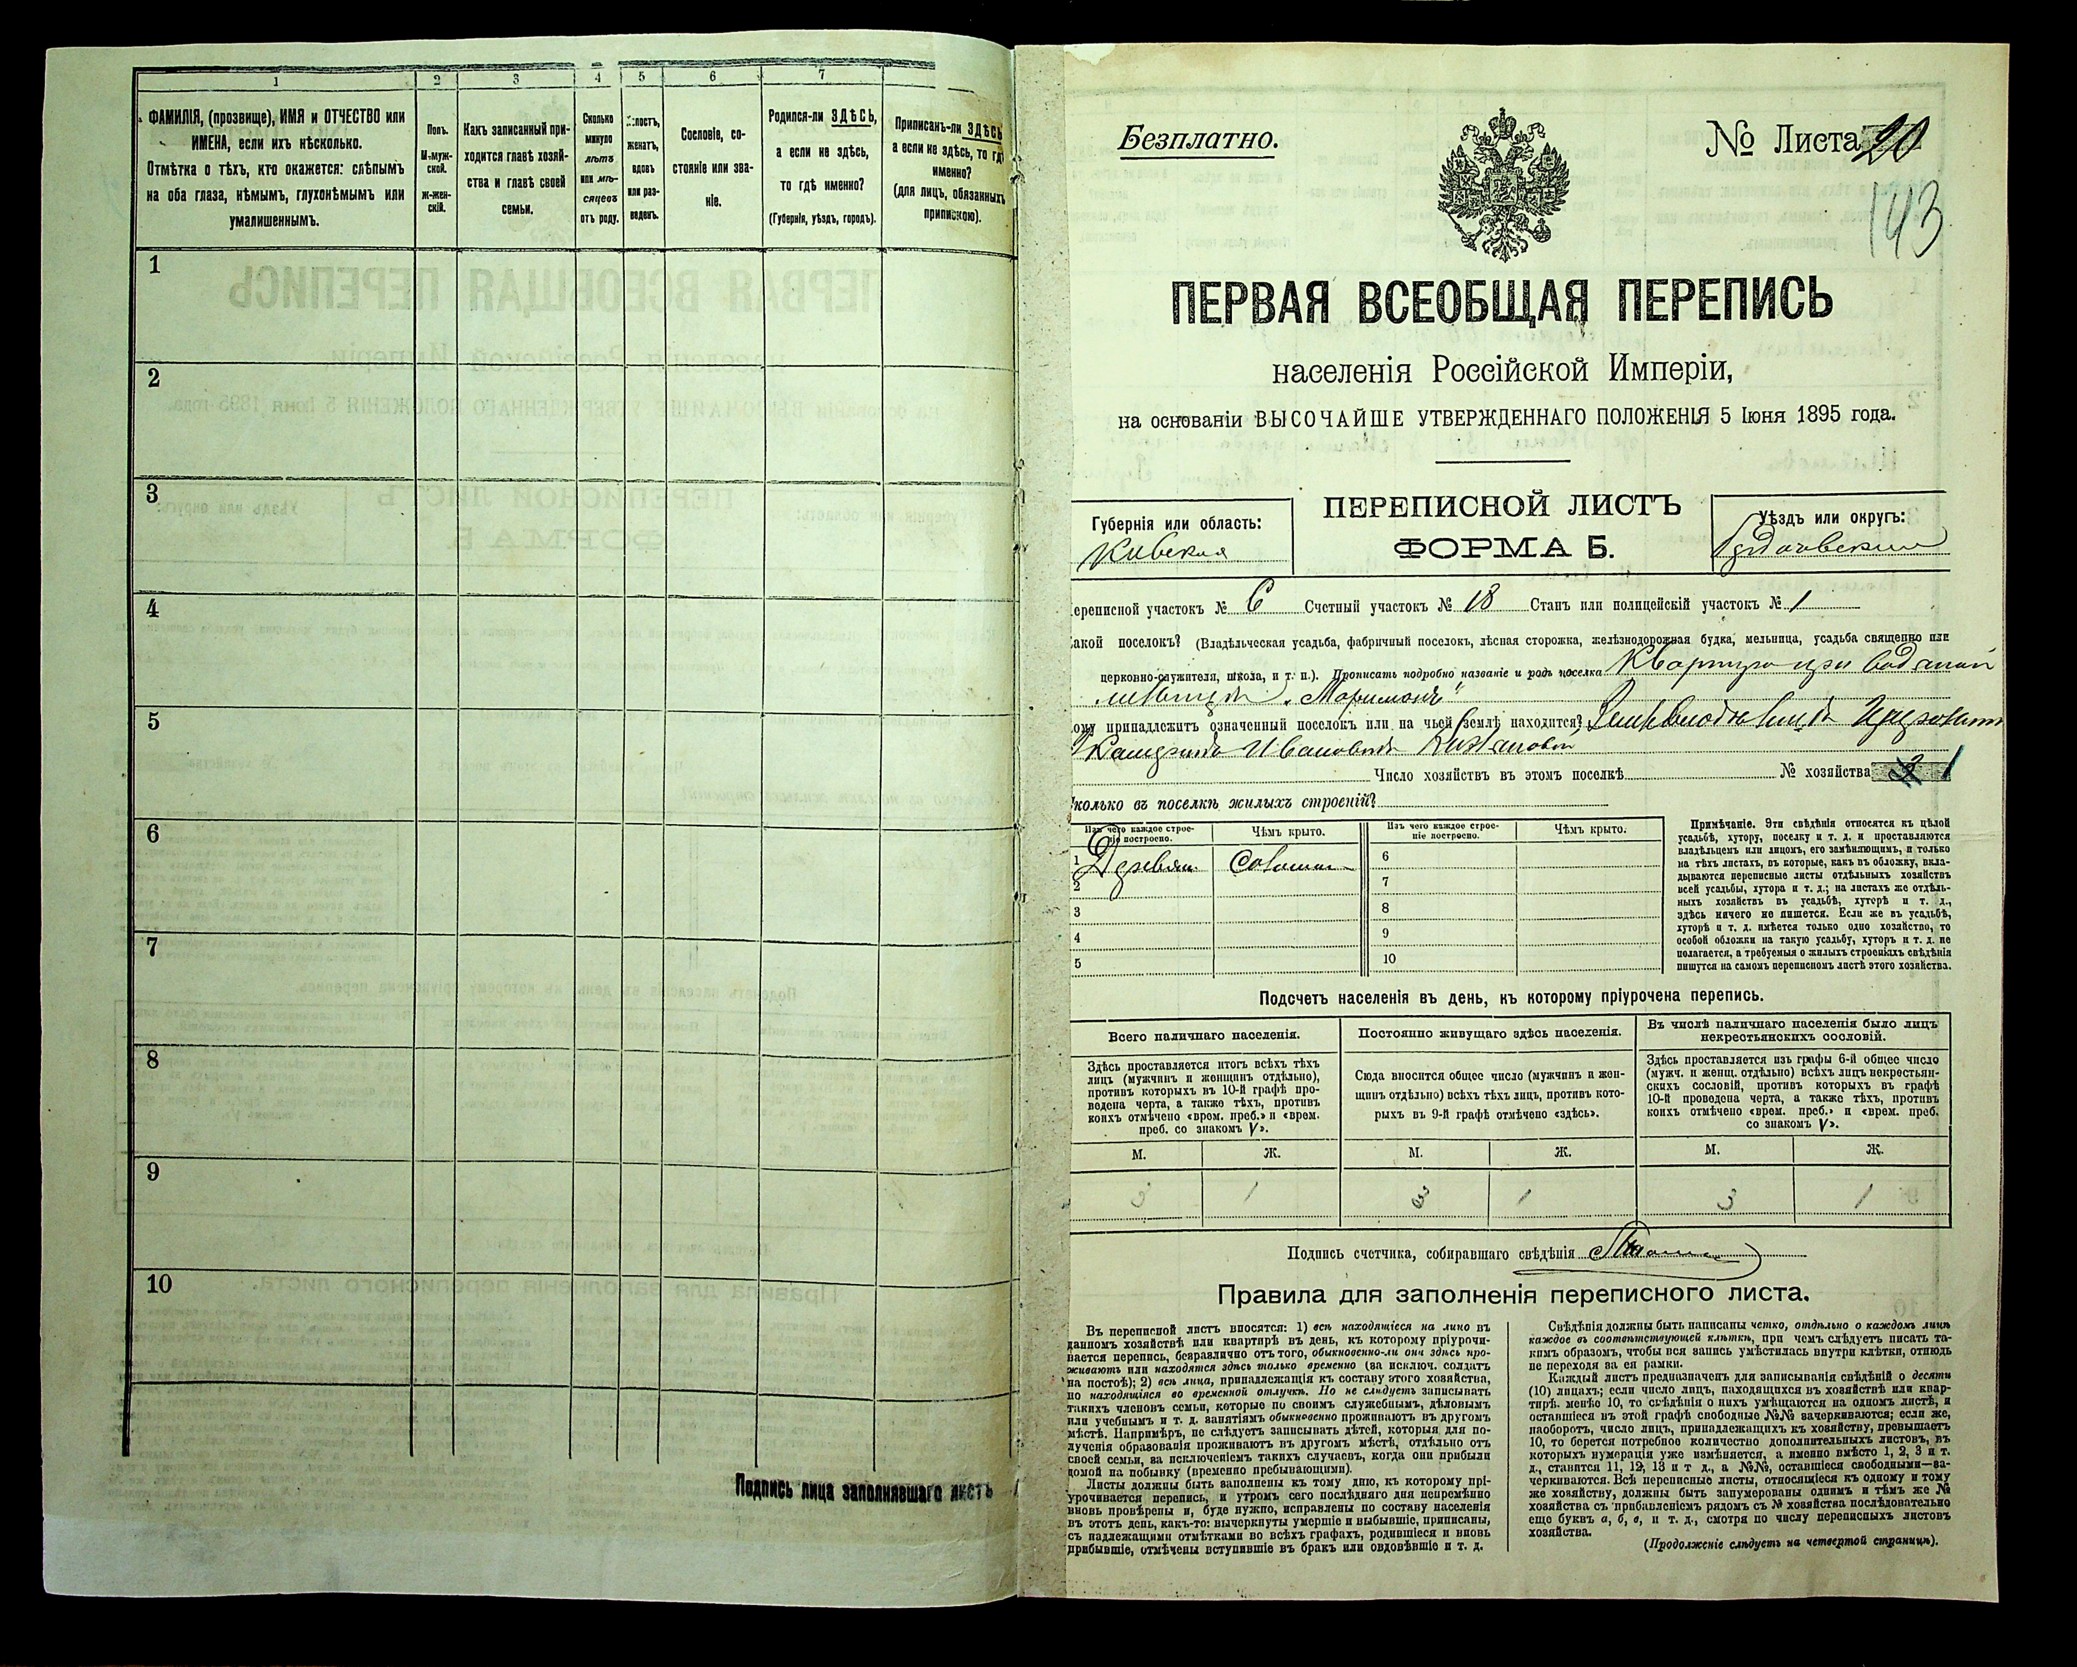 1
2
3
4
5
6
7
ФАМИЛІЯ, (прозвище), ИМЯ и ОТЧЕСТВО или
ИМЕНА, если ихъ нѣсколько.
Отмѣтка о тѣхъ, кто окажется: слѣпымъ
на оба глаза, нѣмымъ, глухонѣмымъ или
умалишеннымъ.
Полъ.
М-муж-
ской.
ж-жен-
скій.
Какъ записанный при-
ходится главѣ хозяй-
ства и главѣ своей
семьи.
Сколько
минуло
лѣтъ
или мѣ-
сяцевъ
отъ роду.
женатъ,
вдовъ
или раз-
веденъ.
Сословіе, со-
стояніе или зва-
ніе.
Родился-ли ЗДѢСЬ,
а если не здѣсь,
то гдѣ именно?
(Губернія, уѣздъ, городъ).
Приписанъ-ли ЗДѢСЬ
а если не здѣсь, то гдѣ
именно?
(для лицъ, обязанныхъ
припискою).
1
2
3
4
5
6
7
8
9
10
Подпись лица заполнявшаго листъ
Безплатно.
№ Листа 20
143
ПЕРВАЯ ВСЕОБЩАЯ ПЕРЕПИСЬ
населенія Россійской Имперіи,
на основаніи ВЫСОЧАЙШЕ УТВЕРЖДЕННАГО ПОЛОЖЕНІЯ 5 Іюня 1895 года.
Губернія или область:
Кіевская
ПЕРЕПИСНОЙ ЛИСТЪ
ФОРМА Б.
Уѣздъ или округъ:
ереписной участокъ № 6 Счетный участокъ № 18 Станъ или полицейскій участокъ № 1
акой поселокъ? (Владѣльческая усадьба, фабричный поселокъ, лѣсная сторожка, желѣзнодорожная будка, мельница, усадьба священно или
церковно-служителя, школа, и т. п.). Прописать подробно названіе и родъ поселка Квартира при водяной
ому принадлежитъ означенный поселокъ или на чьей землѣ находится?
Ивановой
Число хозяйствъ въ этомъ поселкѣ № хозяйства 1
колько въ поселкѣ жилыхъ строеній?
Изъ чего каждое строе-
ніе построено.
Чѣмъ крыто.
Изъ чего каждое строе-
ніе построено.
Чѣмъ крыто.
1 Деревян Солом
2
3
4
5
6
7
8
9
10
Примѣчаніе. Эти свѣдѣнія относятся къ цѣлой
усадьбѣ, хутору, поселку и т. д. и проставляются
владѣльцемъ или лицомъ, его замѣняющимъ, и только
на тѣхъ листахъ, въ которые, какъ въ обложку, вкла-
дываются переписные листы отдѣльныхъ хозяйствъ
всей усадьбы, хутора и т. д.; на листахъ же отдѣль-
ныхъ хозяйствъ въ усадьбѣ, хуторѣ и т. д.,
здѣсь ничего не пишется. Если же въ усадьбѣ,
хуторѣ и т. д. имѣется только одно хозяйство, то
особой обложки на такую усадьбу, хуторъ и т. д. не
полагается, а требуемыя о жилыхъ строеніяхъ свѣдѣнія
пишутся на самомъ переписномъ листѣ этого хозяйства.
Подсчетъ населенія въ день, къ которому пріурочена перепись.
Всего наличнаго населенія.
Здѣсь проставляется итогъ всѣхъ тѣхъ
лицъ (мужчинъ и женщинъ отдѣльно),
противъ которыхъ въ 10-й графѣ про-
ведена черта, а также тѣхъ, противъ
коихъ отмѣчено «врем. преб.» и «врем.
преб. со знакомъ V».
Постоянно живущаго здѣсь населенія.
Сюда вносится общее число (мужчинъ и жен-
щинъ отдѣльно) всѣхъ тѣхъ лицъ, противъ кото-
рыхъ въ 9-й графѣ отмѣчено «здѣсь».
Въ числѣ наличнаго населенія было лицъ
некрестьянскихъ сословій.
Здѣсь проставляется изъ графы 6-й общее число
(мужч. и женщ. отдѣльно) всѣхъ лицъ некрестьян-
скихъ сословій, противъ которыхъ въ графѣ
10-й проведена черта, а также тѣхъ, противъ
коихъ отмѣчено «врем. преб.» и «врем. преб.
со знакомъ V».
М. Ж. М. Ж. М. Ж.
3 1 3 1 3 1
Подпись счетчика, собиравшаго свѣдѣнія
Правила для заполненія переписного листа.
Въ переписной листъ вносятся: 1) всѣ находящіеся на лицо въ
данномъ хозяйствѣ или квартирѣ въ день, къ которому пріурочи-
вается перепись, безразлично отъ того, обыкновенно-ли они здѣсь про-
живаютъ или находятся здѣсь только временно (за исключ. солдатъ
на постоѣ); 2) всѣ лица, принадлежащія къ составу этого хозяйства,
но находящіяся во временной отлучкѣ. Но не слѣдуетъ записывать
такихъ членовъ семьи, которые по своимъ служебнымъ, дѣловымъ
или учебнымъ и т. д. занятіямъ обыкновенно проживаютъ въ другомъ
мѣстѣ. Напримѣръ, не слѣдуетъ записывать дѣтей, которыя для по-
лученія образованія проживаютъ въ другомъ мѣстѣ, отдѣльно отъ
своей семьи, за исключеніемъ такихъ случаевъ, когда они прибыли
домой на побывку (временно пребывающими).
Листы должны быть заполнены къ тому дню, къ которому прі-
урочивается перепись, и утромъ сего послѣдняго дня непремѣнно
вновь провѣрены и, буде нужно, исправлены по составу населенія
въ этотъ день, какъ-то: вычеркнуты умершіе и выбывшіе, приписаны,
съ надлежащими отмѣтками во всѣхъ графахъ, родившіеся и вновь
прибывшіе, отмѣчены вступившіе въ бракъ или овдовѣвшіе и т. д.
Свѣдѣнія должны быть написаны четко, отдѣльно о каждомъ лицѣ
каждое въ соотвѣтствующей клѣткѣ, при чемъ слѣдуетъ писать та-
кимъ образомъ, чтобы вся запись умѣстилась внутри клѣтки, отнюдь
не переходя за ея рамки.
Каждый листъ предназначенъ для записыванія свѣдѣній о десяти
(10) лицахъ; если число лицъ, находящихся въ хозяйствѣ или квар-
тирѣ. менѣе 10, то свѣдѣнія о нихъ умѣщаются на одномъ листѣ, и
оставшіеся въ этой графѣ свободные №№ зачеркиваются; если же,
наоборотъ, число лицъ, принадлежащихъ къ хозяйству, превышаетъ
10, то берется потребное количество дополнительныхъ листовъ, въ
которыхъ нумерація уже измѣняется, а именно вмѣсто 1, 2, 3 и т.
д., ставится 11, 12, 13 и т д., а №№, оставшіеся свободными—за-
черкиваются. Всѣ переписные листы, относящіеся къ одному и тому
же хозяйству, должны быть занумерованы однимъ и тѣмъ же №
хозяйства съ прибавленіемъ рядомъ съ № хозяйства послѣдовательно
еще буквъ а, б, в, и т. д., смотря по числу переписныхъ листовъ
хозяйства.
(Продолженіе слѣдуетъ на четвертой страницѣ).